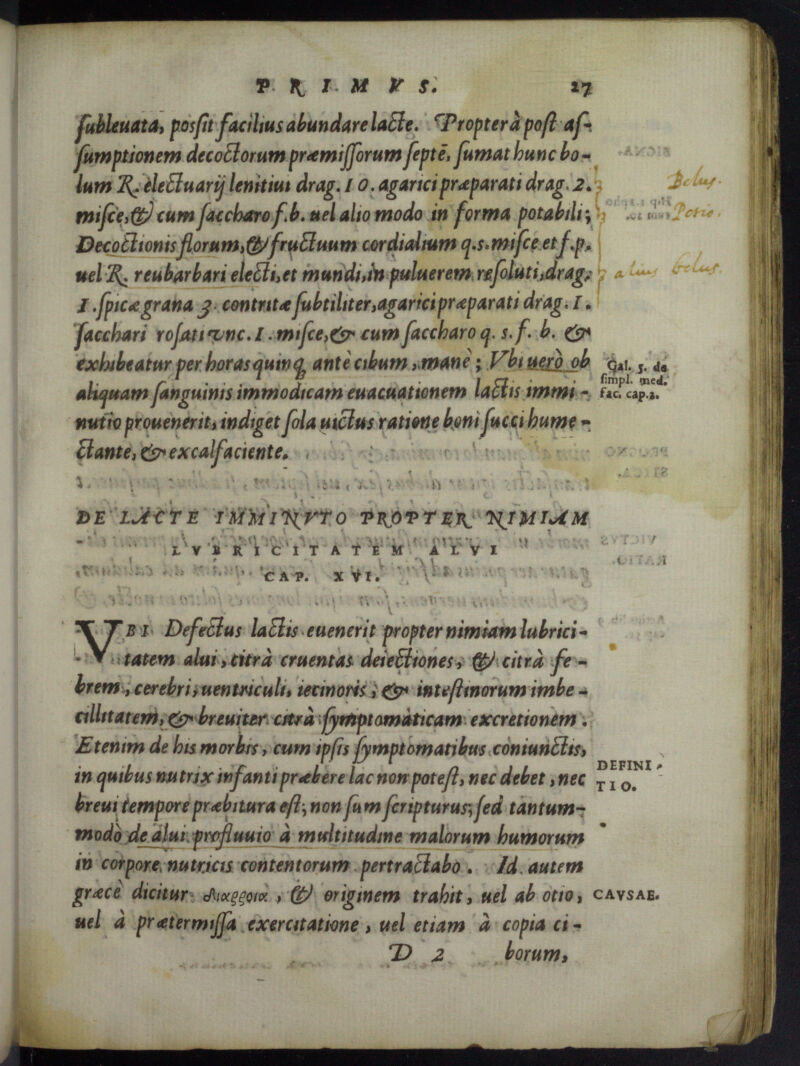 PRIMVS. 27
ſubleuata, posſit facilius abundare lacte. Propterà poſt aſ-
ſumptionem decoctorum præmiſſorum ſeptẽ, ſumat hunc bo-
lum ℞. electuarij lenitiui drag. 10. agarici præparati drag. 2.
Bolus.
miſce, & cum ſaccharo f.b. uel alio modo in forma potabili;
Potio.
Decoctionis florum, & fructuum cordialium q.s. miſce et f.p.
uel ℞. reubarbari electi, et mundi, in puluerem reſoluti, drag.
alius bolus.
1. ſpicæ grana 3. contritæ ſubtiliter, agarici præparati drag. 1.
ſacchari roſati vnc. 1. miſce, & cum ſaccharo q. s. f. b. &
exhibeatur per horas quinq; antè cibum, manè; Vbi uerò ob
Gal. 5. de
aliquam ſanguinis immodicam euacuationem lactis immi-
ſimpl. med.
nutio prouenerit, indiget ſola uictus ratione boni ſucci hume-
fac. cap.2.
ctante, & excalfaciente.
DE LACTE IMMINVTO PROPTER NIMIAM
LVBRICITATEM ALVI
CAP. XVI.
VBI Defectus lactis euenerit propter nimiam lubrici-
tatem alui, citrà cruentas deiectiones, & citrà fe-
brem, cerebri, uentriculi, iecinoris, & inteſtinorum imbe-
cillitatem, & breuiter citrà ſymptomaticam excretionem.
Etenim de his morbis, cum ipſis ſymptomatibus coniunctis,
in quibus nutrix infanti præbere lac non poteſt, nec debet, nec
DEFINI-
TIO.
breui tempore præbitura eſt; non ſum ſcripturus; ſed tantum-
modò de alui profluuio à multitudine malorum humorum
in corpore nutricis contentorum pertractabo. Id autem
græcè dicitur διαῤῥοια, & originem trahit, uel ab otio,
CAVSAE.
uel à prætermiſſa exercitatione, uel etiam à copia ci-
D 2 borum,